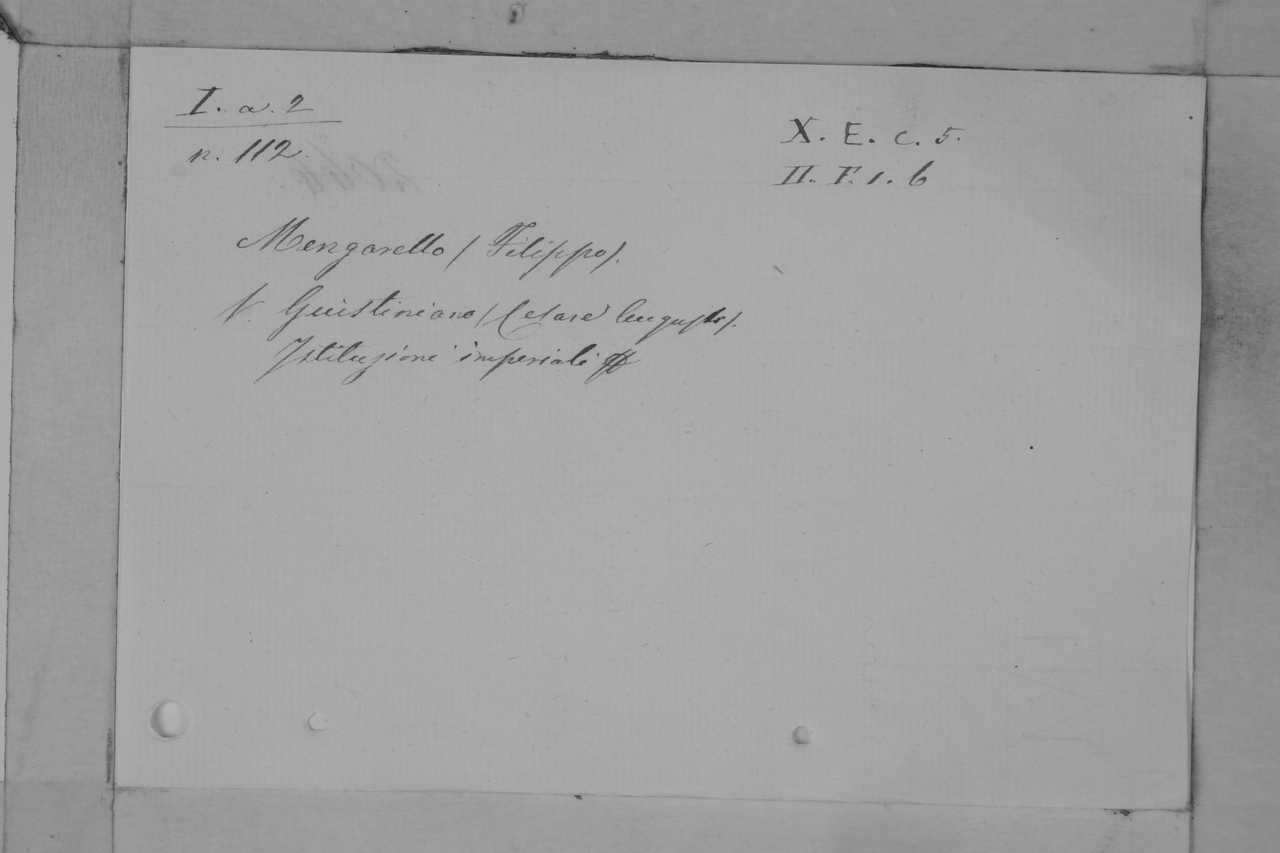 I. a. 2
n. 112.
X. E. c. 5.
II. F. 1. 6
Mengarello (Filippo).
V. Giustiniano (Cesare Augusto).
Istituzioni imperiali